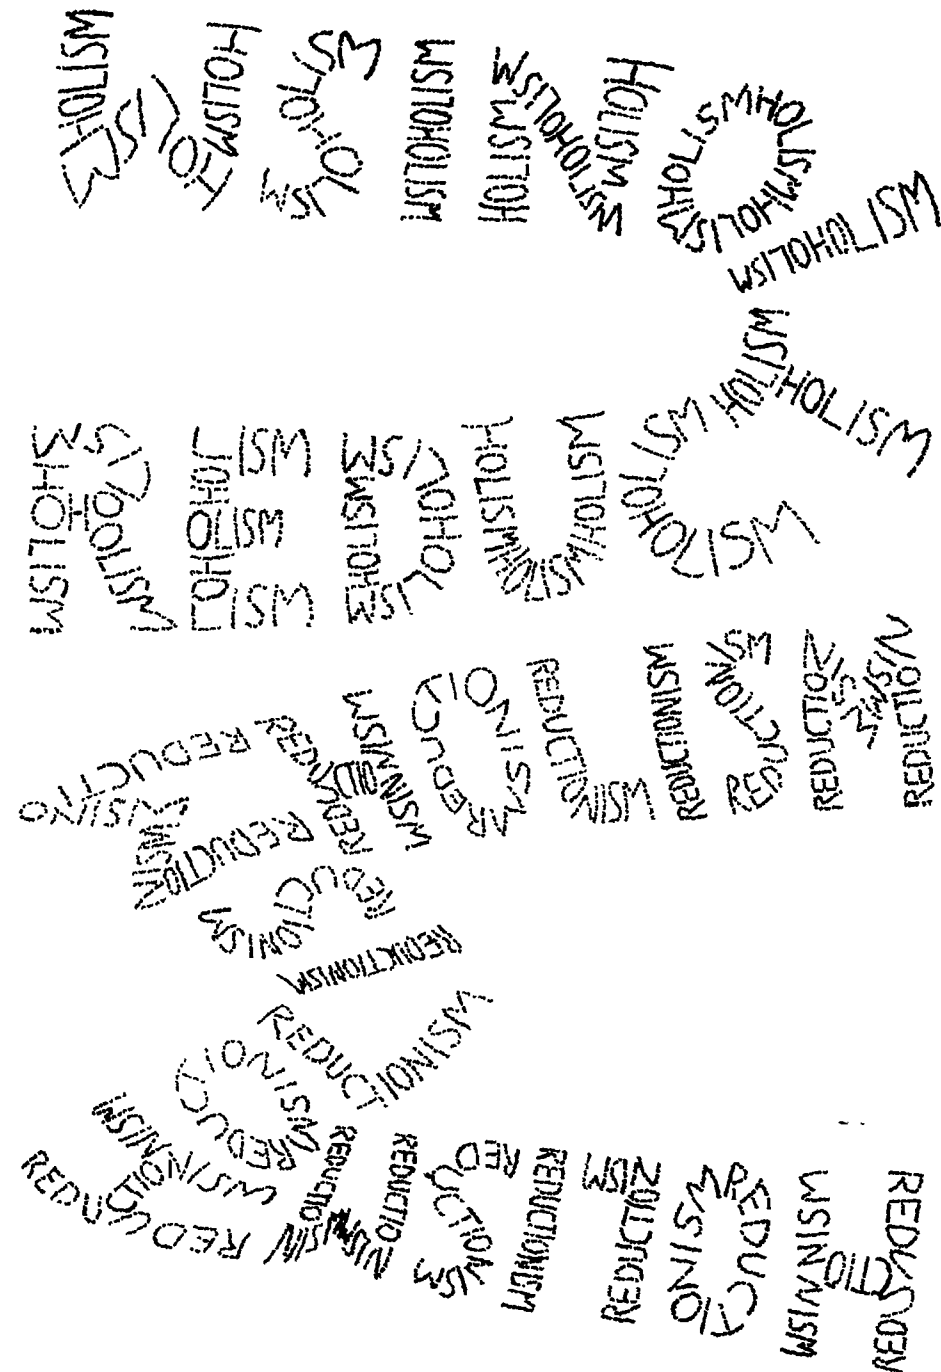 HOLISM HOLISM HOLISM HOLISM HOLISM HOLISM HOLISM HOLISM HOLISM HOLISM HOLISM HOLISM HOLISM HOLISM HOLISM HOLISM HOLISM
HOLISM HOLISM
HOLISM HOLISM
HOLISM HOLISM HOLISM HOLISM HOLISM HOLISM HOLISM HOLISM HOLISM HOLISM HOLISM HOLISM HOLISM HOLISM
REDUCTIONISM REDUCTIONISM REDUCTIONISM REDUCTIONISM REDUCTIONISM REDUCTIONISM REDUCTIONISM REDUCTIONISM
REDUCTIONISM REDUCTIONISM
REDUCTIONISM
REDUCTIONISM
REDUCTIONISM
REDUCTIONISM
REDUCTIONISM REDUCTIONISM
REDUCTIONISM REDUCTIONISM REDUCTIONISM REDUCTIONISM REDUCTIONISM REDUCTIONISM REDUCTIONISM REDUCTIONISM